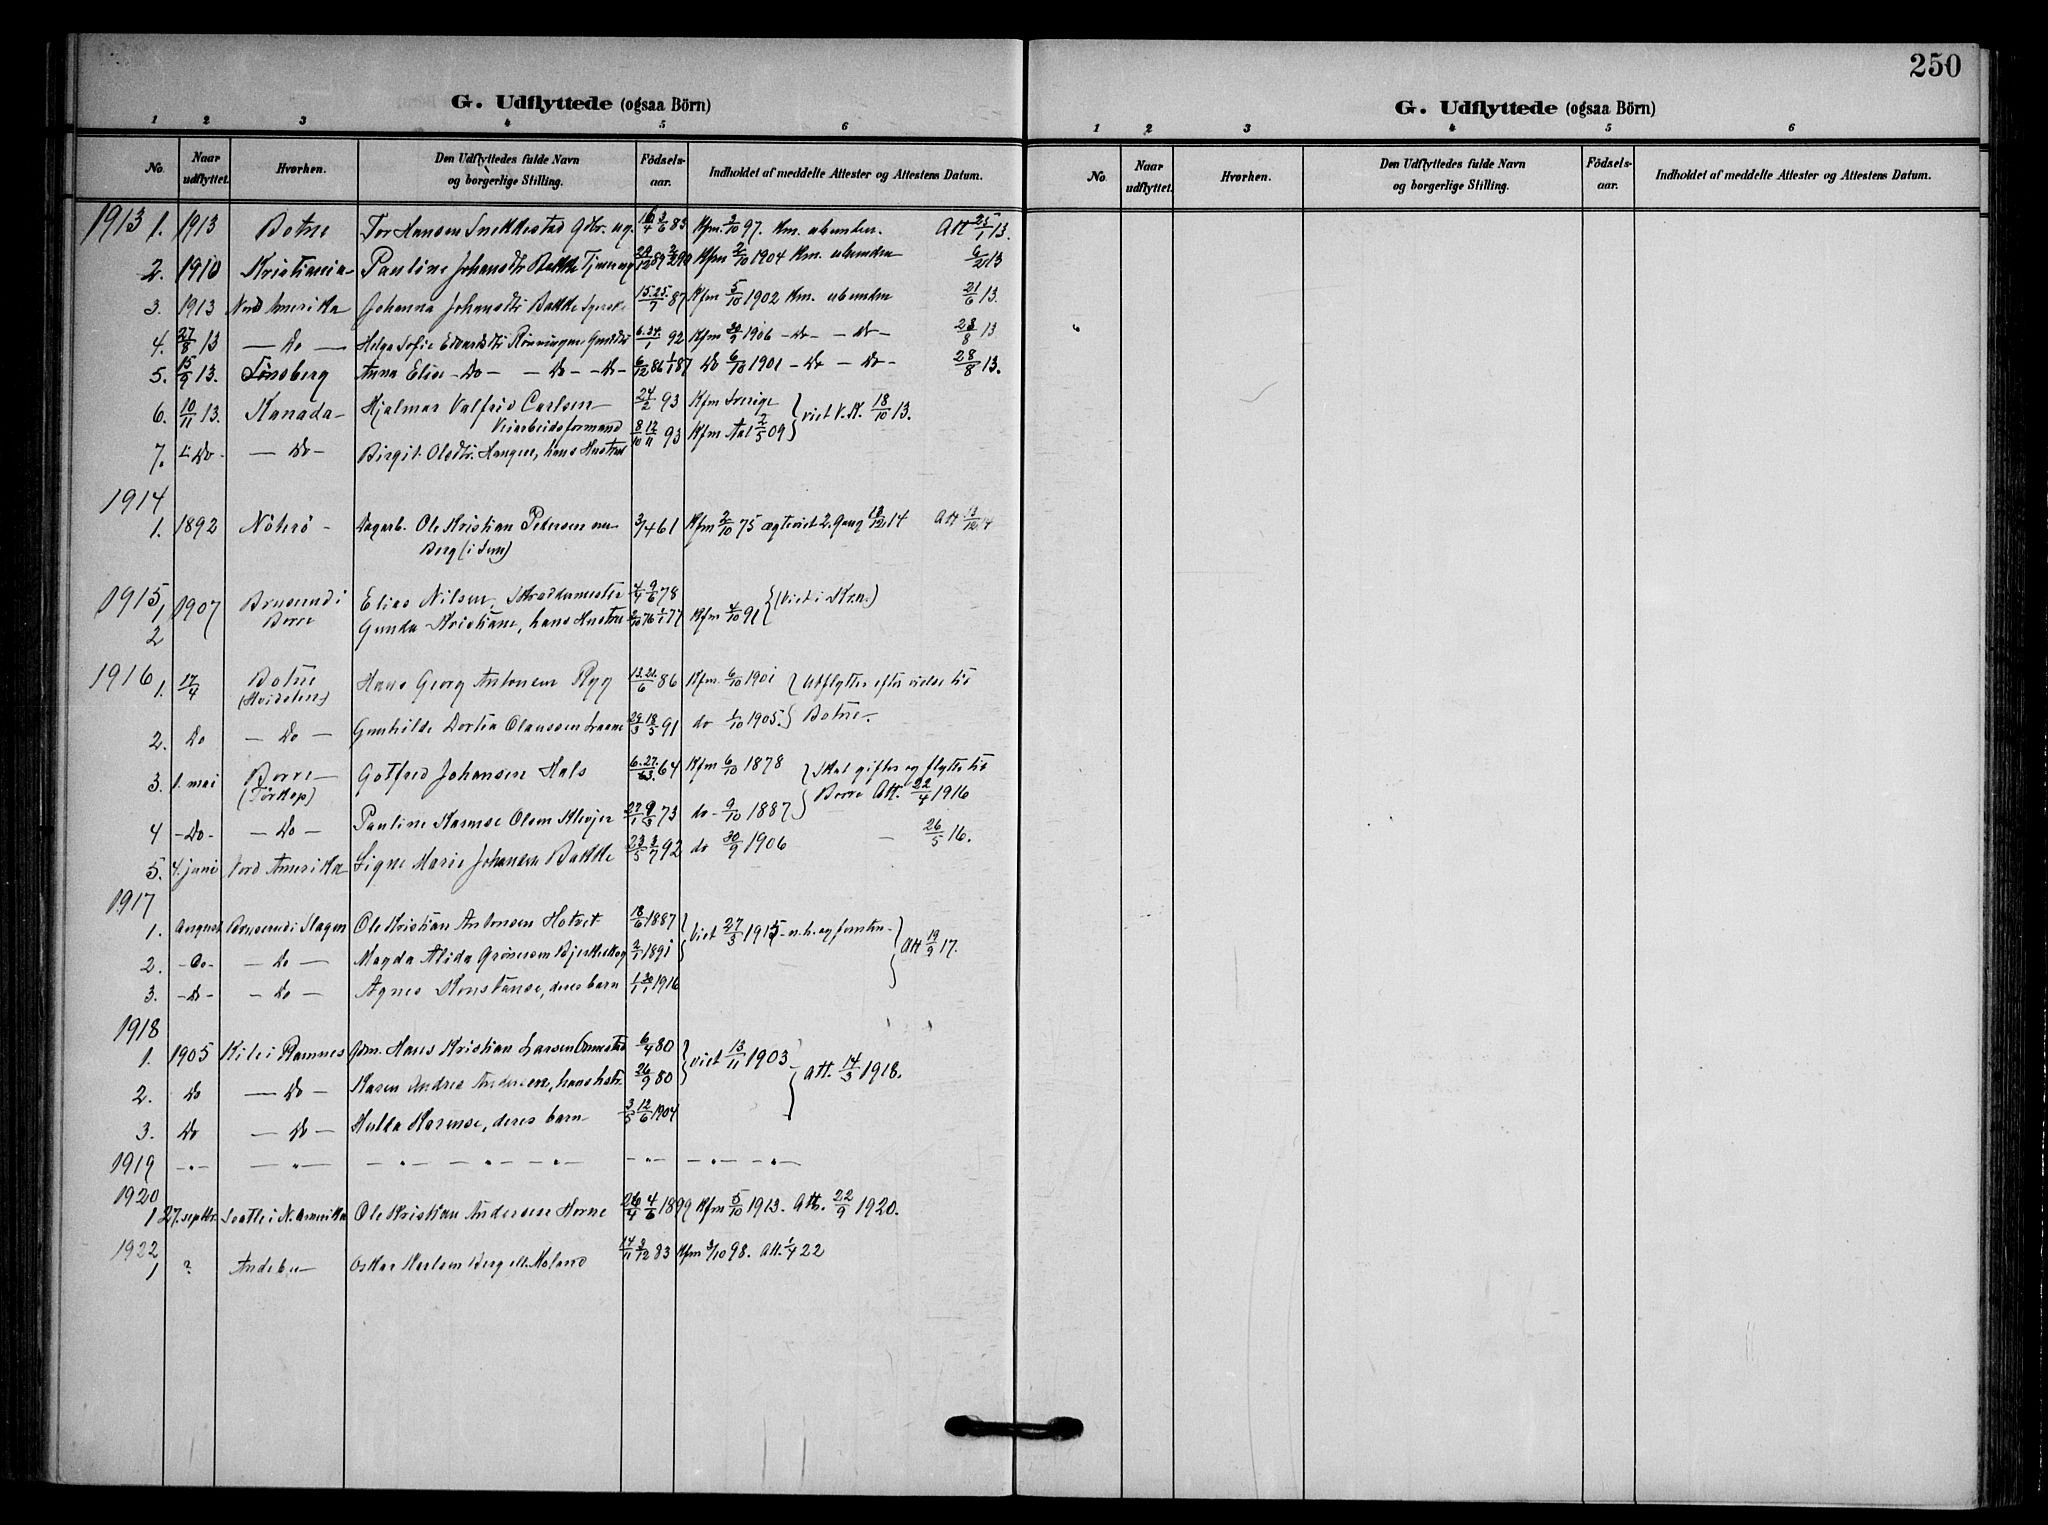 250
G. Udflyttede (ogsaa Börn)
1 2 3 4 5 6
No. Naar udflyttet. Hvorhen. Den Udflyttedes fulde Navn og borgerlige Stilling. Födsels-aar. Indholdet af meddelte Attester og Attestens Datum.
1913 1. 1913 Botne Tor Hansen Snekkestad 83 Kfm. 3/10 97. Km. ubunden. Att 25/1 13.
2. 1910 Kristiania Pauline Johansdtr Bakke Kfm 2/10 1904 Km. ubunden 6/2 13
3. 1913 Nord Amerika Johanna Johansdtr Bakke 15. 25./7 87 Kfm 5/10 1902 Km. ubunden 21/6 13.
4. 27/8 13 — Do — Helga Sofie Edvardsdtr Rönningen 92 Kfm 30/9 1906 – Do – – Do – 23/8 13
5. 15/9 13. Tönsberg Anna Elise – Do – – Do – – Do – 6/12 86 1/1 87 Do 6/10 1901 – Do – Do – 28/8 13.
6. 10/11 13. Kanada – Hjalmar Valfrid Carlsen 24/2 93 Kfm Sverige } viet V. K. 18/10 13.
Veiarbeidsformand
7. – Do – — Do – Birgit Olsdtr. Haugen, hans Hustru 8/10 12/11 93 Kfm Aal 2/5 09
1914
1. 1892 Nöhrö – Dagarb. Ole Kristian Petersen 3/4 61 Kfm 2/10 75 ægteviet 2. Gang 13/12 14 Att 13/12 14
Berg (i Sem)
1915 1 1907 Brusrud i Borre Elias Nilsen, Skreddermester 4/4 9/6 78 } (Viet i Krn.)
2 Gunda Kristiane, hans Hustru 76 1/1 77 Kfm 4/10 91
1916 1. 17/4 Botne Hans Georg Antonsen Ryg 13. 21./6 86 Kfm. 6/10 1901 } Udflytter efter vielse til
(Hvidsten)
2. Do — Do — Gunhilde Dortea Olaussen 29/3 18/5 91 do 1/10 1905. } Botne.
3. 1. mai Borre Gotfred Johansen Hals 64 Kfm 6/10 1878 } Skal giftes og flytte til
(Törkop)
4 – Do – — Do — Pauline Karense Olsen 73 do – 9/10 1887 } Borre Att. 22/4 1916
5. 4. juni Nord Amerika Signe Marie Johansen Bakke 23/5 3/7 92 do 30/9 1906 – 26/5 16.
1917
1. August i Slagen Ole Kristian Antonsen Holtet 18/6 1887 } Viet 27/3 1915 } Att 19/9 17.
2. – Do – — Do — Magda Alida 2/1 1891
3. – Do – – Do — Agnes Konstanse, deres barn 1/1 30/1 1916
1918
1. 1905 Kile i Ramnes Gdm. Hans Kristian Larsen 6/4 80 } viet 13/11 1903
2. Do — Do — Karen Andrea Andersen, hans hstr. 26/9 80 } Att. 14/3 1918.
3. Do — Do — Hulda Karense, deres barn 3/5 12/6 1904
1919 – „ – — „ — – „ – – „ – – „ – – „ – – „ – „ –
1920
1. 27. septbr. Seatle i N. Amerika Ole Kristian Andersen Horne 26/4 4/6 1899 Kfm 5/10 1913. Att. 22/9 1920.
1922
1 ? Andebu Oskar Karlsen Berg ell. Moland 14/11 3/12 83 Kfm 3/10 98. Att. 1/4 22
G. Udflyttede (ogsaa Börn)
1 2 3 4 5 6
No. Naar udflyttet. Hvorhen. Den Udflyttedes fulde Navn og borgerlige Stilling. Födsels-aar. Indholdet af meddelte Attester og Attestens Datum.